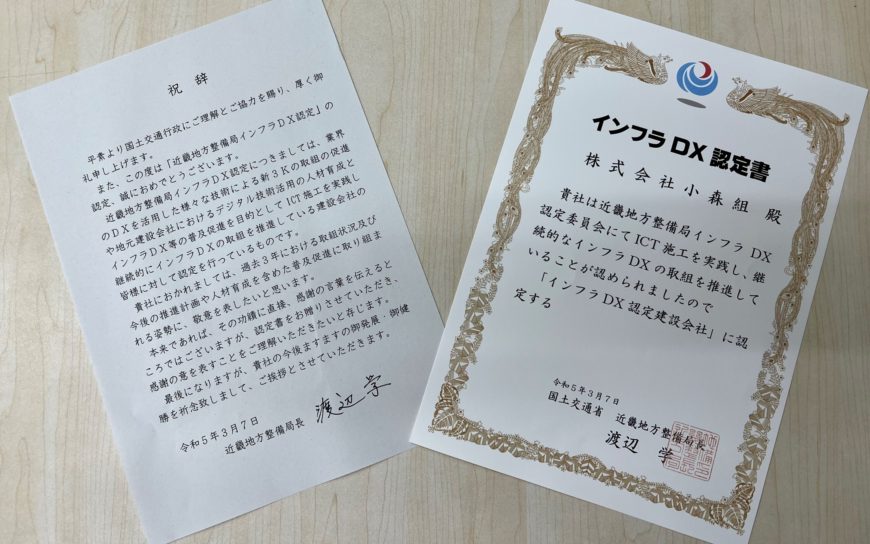 祝辞
平素より国土交通行政にご理解とご協力を賜り、厚く御
礼申し上げます。
また、この度は「近畿地方整備局インフラDX認定」の
認定、誠におめでとうございます。
近畿地方整備局インフラDX認定につきましては、業界
のDXを活用した様々な技術による新3Kの取組の促進
や地元建設会社におけるデジタル技術活用の人材育成と
インフラDX等の普及促進を目的としてICT施工を実践し
継続的にインフラDXの取組を推進している建設会社の
皆様に対して認定を行っているものです。
貴社におかれましては、過去3年における取組状況及び
今後の推進計画や人材育成を含めた普及促進に取り組ま
れる姿勢に、敬意を表したいと思います。
本来であれば、その功績に直接、感謝の言葉を伝えると
ころではございますが、認定書をお贈りさせていただき、
感謝の意を表すことをご理解いただきたいと存じます。
最後になりますが、貴社の今後ますますの御発展・御健
勝を祈念致しまして、ご挨拶とさせていただきます。
令和5年3月7日
近畿地方整備局長 渡辺学
インフラDX認定書
株式会社小森組 殿
貴社は近畿地方整備局インフラDX
認定委員会にてICT施工を実践し、継
続的なインフラDXの取組を推進して
いることが認められましたので
「インフラDX認定建設会社」に認
定する
令和5年3月7日
国土交通省 近畿地方整備局長
渡辺 学